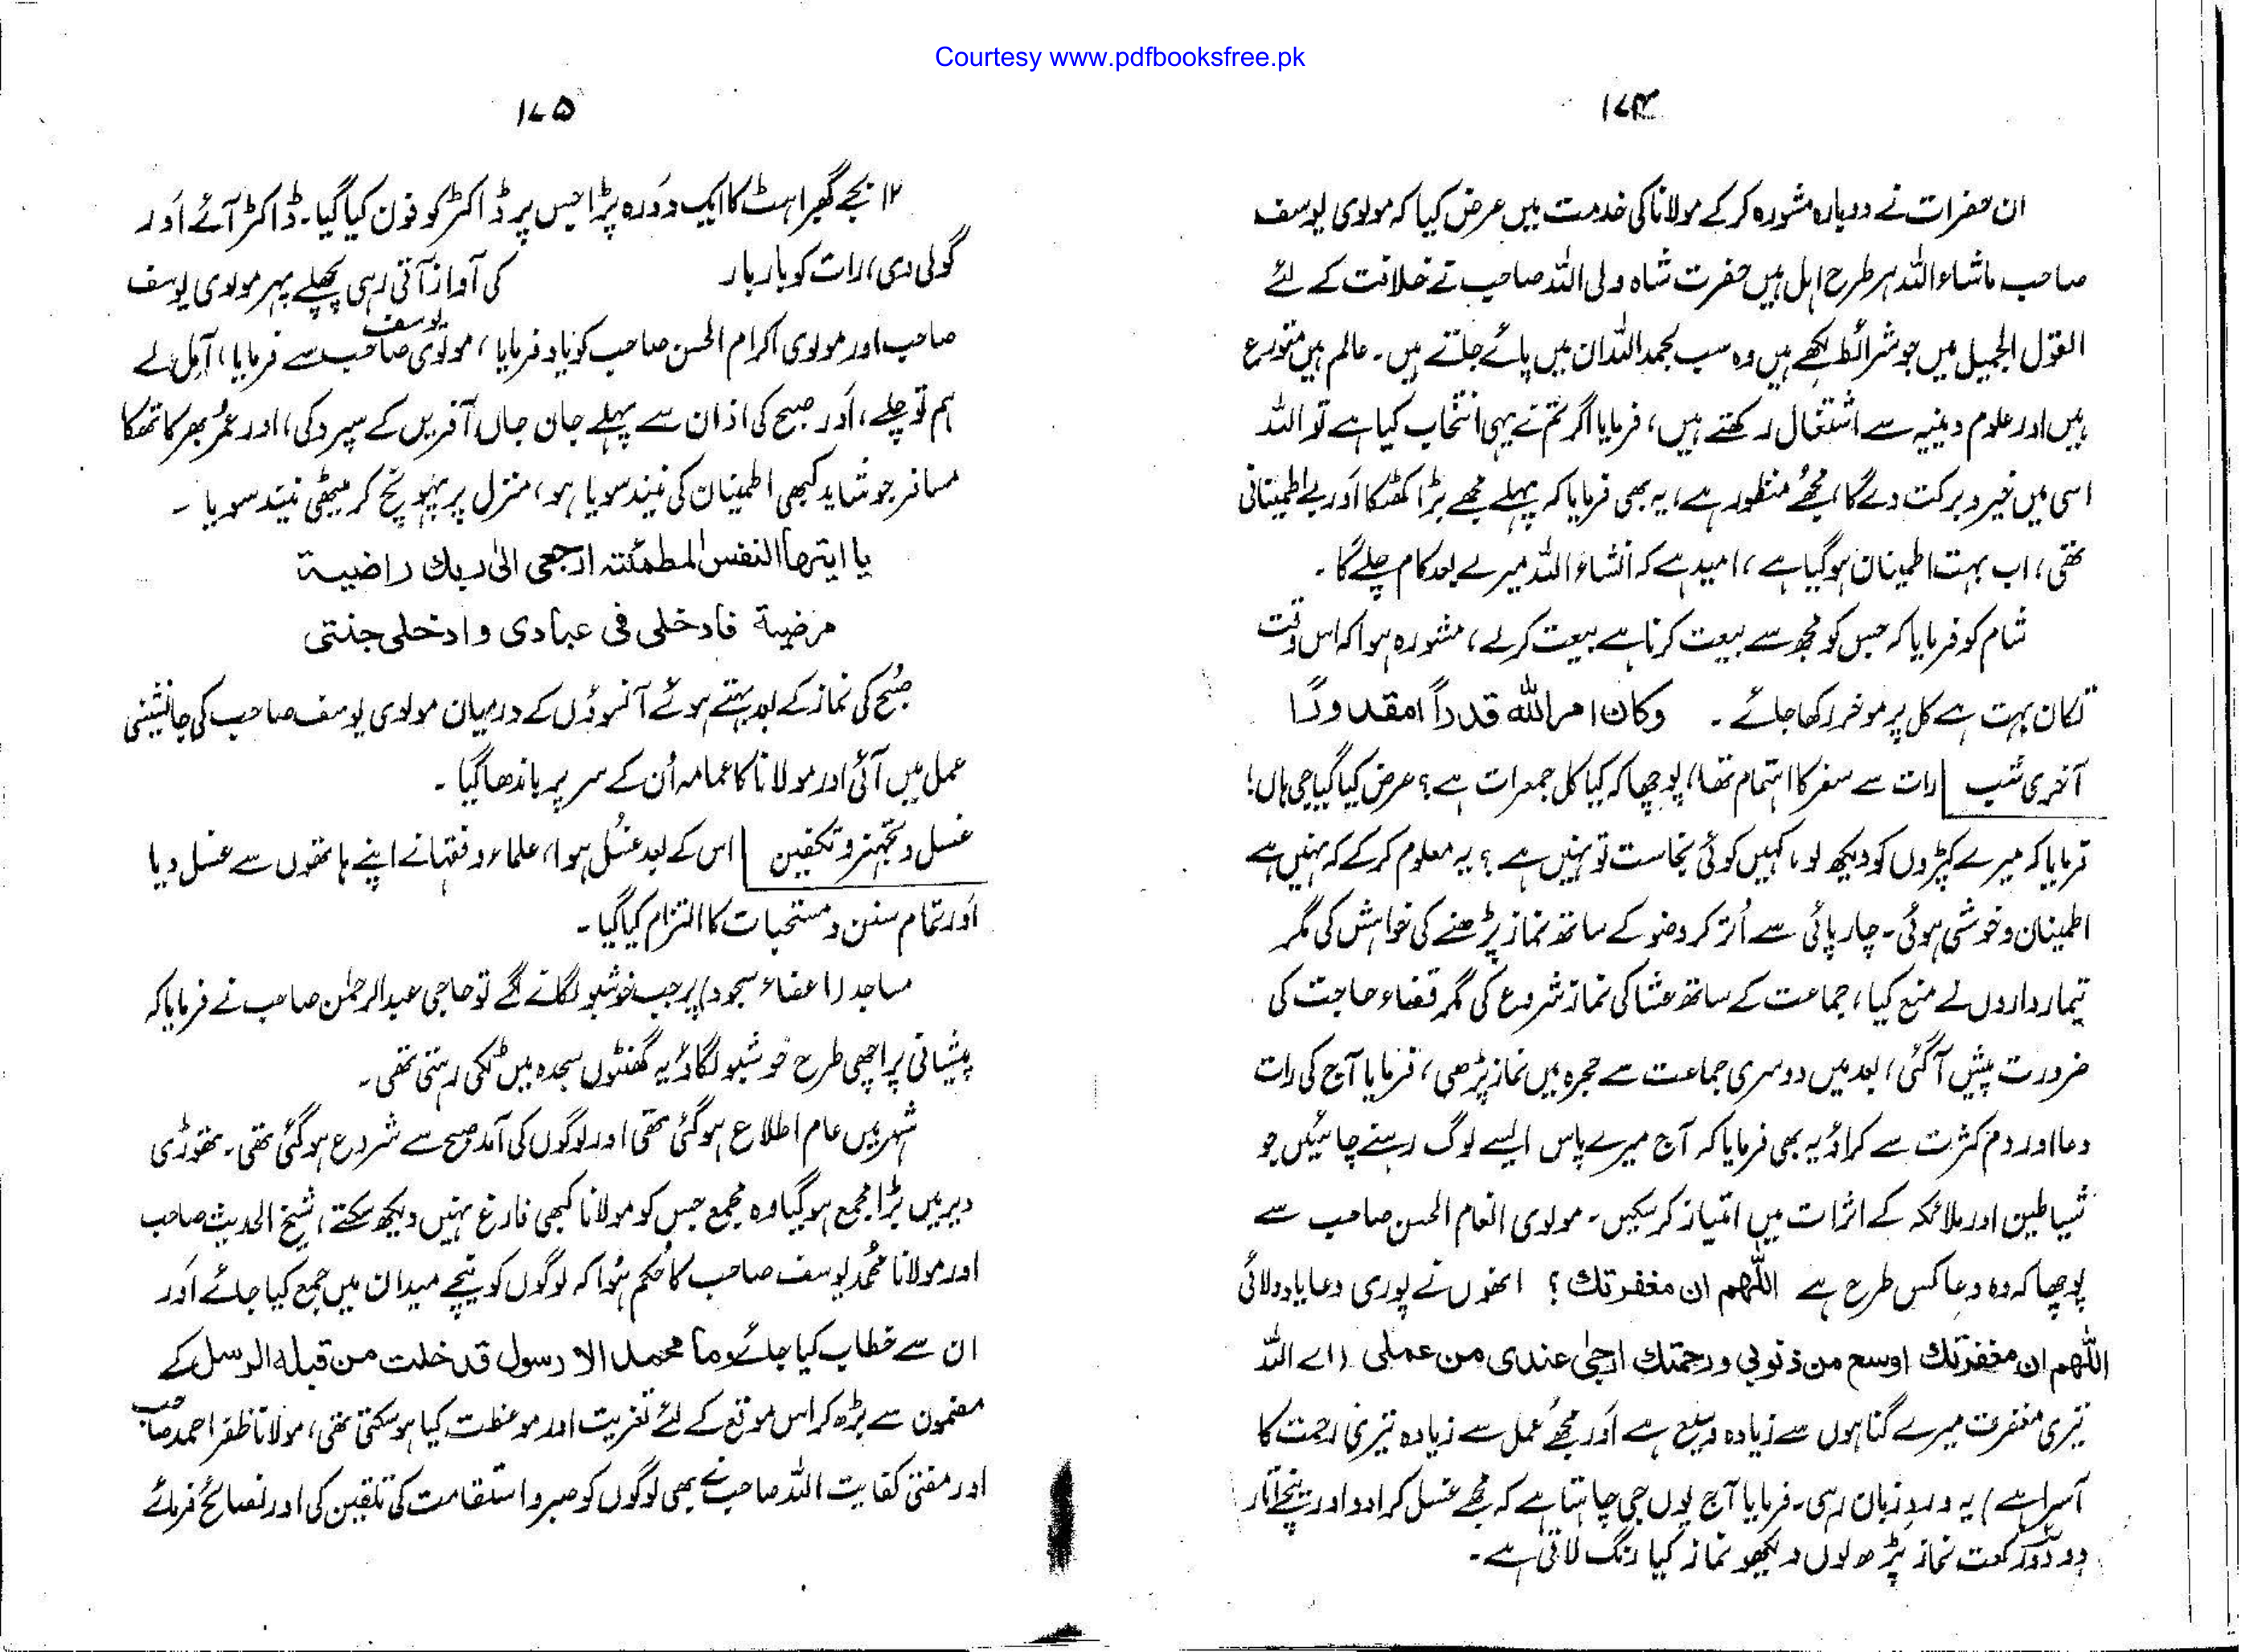 Courtesy www.pdfbooksfree.pk
۱۷۴
ان حضرات نے دوبارہ مشورہ کر کے مولانا کی خدمت میں عرض کیا کہ مولوی یوسف
صاحب ماشاء اللہ ہر طرح اہل ہیں حضرت شاہ ولی اللہ صاحب نے خلافت کے لئے
القول الجمیل میں جو شرائط لکھے ہیں وہ سب بحمد اللہ ان میں پائے جاتے ہیں۔ عالم ہیں متورع
ہیں اور علوم دینیہ سے اشتغال رکھتے ہیں، فرمایا اگر تم نے یہی انتخاب کیا ہے تو اللہ
اسی میں خیر و برکت دے گا، مجھے منظور ہے، یہ بھی فرمایا کہ پہلے مجھے بڑا کھٹکا اور بے اطمینانی
تھی، اب بہت اطمینان ہو گیا ہے، امید ہے کہ انشاء اللہ میرے بعد کام چلے گا۔
شام کو فرمایا کہ جس کو مجھ سے بیعت کرنا ہے بیعت کرلے، مشورہ ہوا کہ اس وقت
تکان بہت ہے کل پر موخر رکھا جائے۔ وکان امر اللہ قدراً مقدورًا
آخری شب رات سے سفر کا اہتمام تھا، پوچھا کہ کیا کل جمعرات ہے؟ عرض کیا گیا جی ہاں!
فرمایا کہ میرے کپڑوں کو دیکھ لو، کہیں کوئی نجاست تو نہیں ہے؟ یہ معلوم کر کے کہ نہیں ہے
اطمینان و خوشی ہوئی۔ چارپائی سے اُتر کر وضو کے ساتھ نماز پڑھنے کی خواہش کی مگر
تیمارداروں نے منع کیا، جماعت کے ساتھ عشا کی نماز شروع کی مگر قضاء حاجت کی
ضرورت پیش آگئی، بعد میں دوسری جماعت سے حجرہ میں نماز پڑھی، فرمایا آج کی رات
دعا اور دم کثرت سے کراؤ یہ بھی فرمایا کہ آج میرے پاس ایسے لوگ رہنے چاہئیں جو
شیاطین اور ملائکہ کے اثرات میں امتیاز کر سکیں۔ مولوی انعام الحسن صاحب سے
پوچھا کہ وہ دعا کس طرح ہے اللّٰھم ان مغفرتك؟ انھوں نے پوری دعا یاد دلائی
اللّٰھم ان مغفرتك اوسع من ذنوبی ورحمتك ارجیٰ عندی من عملی (اے اللہ
تیری مغفرت میرے گناہوں سے زیادہ وسیع ہے اور مجھے عمل سے زیادہ تیری رحمت کا
آسرا ہے) یہ ورد زبان رہی۔ فرمایا آج یوں جی چاہتا ہے کہ مجھے غسل کرا دو اور نیچے اتار
دو دو رکعت نماز پڑھ لوں دیکھو نماز کیا رنگ لاتی ہے۔
۱۷۵
۱۲ بجے گھبراہٹ کا ایک دورہ پڑا جس پر ڈاکٹر کو فون کیا گیا۔ ڈاکٹر آئے اور
گولی دی، رات کو بار بار کی آواز آتی رہی پچھلے پہر مولوی یوسف
صاحب اور مولوی اکرام الحسن صاحب کو یاد فرمایا، مولوی یوسف صاحب سے فرمایا، آمل لے
ہم تو چلے، اور صبح کی اذان سے پہلے جان جاں آفریں کے سپرد کی، اور عمر بھر کا تھکا
مسافر جو شاید کبھی اطمینان کی نیند سویا ہو، منزل پر پہونچ کر میٹھی نیند سویا۔
یا ایتہا النفس المطمئنتہ ارجعی الیٰ ربك راضیة
مرضیة فادخلی فی عبادی وادخلی جنتی
صبح کی نماز کے بعد بہتے ہوئے آنسوؤں کے درمیان مولوی یوسف صاحب کی جانشینی
عمل میں آئی اور مولانا کا عمامہ اُن کے سر پر باندھا گیا۔
غسل و تجہیز و تکفین اس کے بعد غسل ہوا، علماء و فقہا نے اپنے ہاتھوں سے غسل دیا
اور تمام سنن و مستحبات کا التزام کیا گیا۔
مساجد (اعضاء سجود) پر جب خوشبو لگانے لگے تو حاجی عبدالرحمٰن صاحب نے فرمایا کہ
پیشانی پر اچھی طرح خوشبو لگاؤ یہ گھنٹوں سجدہ میں ٹکی رہتی تھی۔
شہر میں عام اطلاع ہو گئی تھی اور لوگوں کی آمد صبح سے شروع ہو گئی تھی۔ تھوڑی
دیر میں بڑا مجمع ہو گیا وہ مجمع جس کو مولانا کبھی فارغ نہیں دیکھ سکتے، شیخ الحدیث صاحب
اور مولانا محمد یوسف صاحب کا حکم ہُوا کہ لوگوں کو نیچے میدان میں جمع کیا جائے اور
ان سے خطاب کیا جائے وما محمد الا رسول قد خلت من قبلہ الرسل کے
مضمون سے بڑھ کر اس موقع کے لئے تعزیت اور موعظت کیا ہو سکتی تھی، مولانا ظفر احمد صاحب
اور مفتی کفایت اللہ صاحب نے بھی لوگوں کو صبر و استقامت کی تلقین کی اور نصائح فرمائے